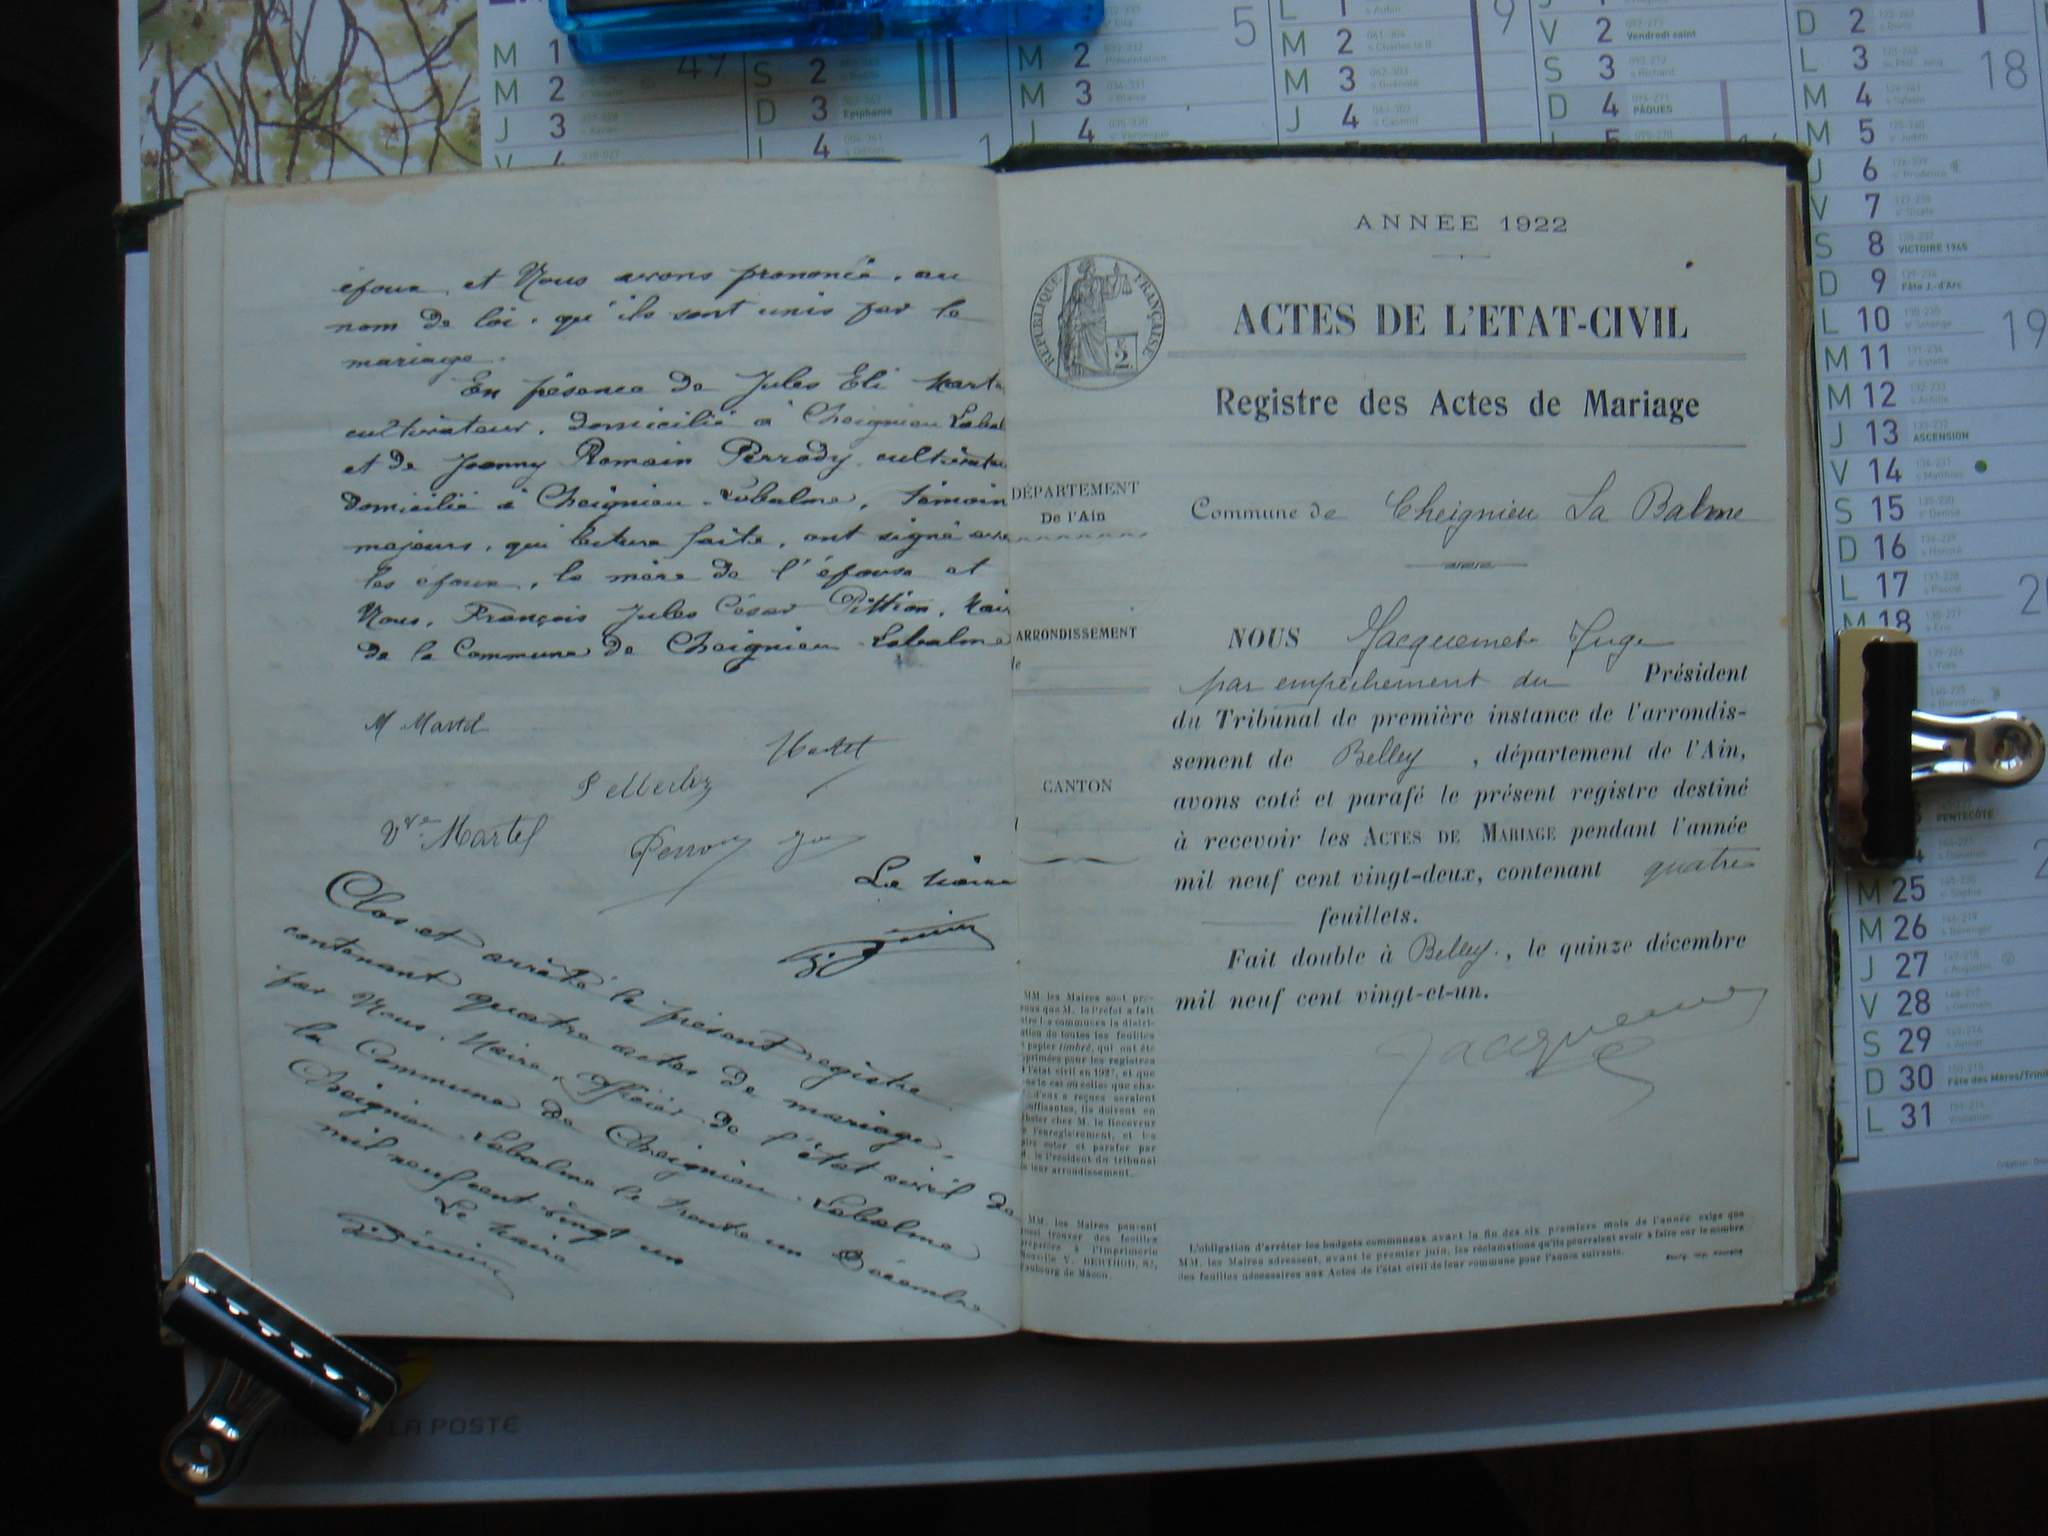 époux et Nous avons prononcé, au
nom de loi, qu'ils sont unis par le
mariage.
En présence de Jules Eli Marte
cultivateur, domicilié à Cheignieu Labal
et de Joanny Romain Perrody, cultivateu
domicilié à Cheignieu-Labalme, témoin
majeurs, qui lecture faite, ont signé ave
les époux, la mère de l'épouse et
Nous, François Jules César Pittion, Mair
de la Commune de Cheignieu-Labalme
M Martel
Martel
Vve Martel
Le Maire
Clos et arrêté le présent registre
contenant quatre actes de mariage,
par Nous, Maire, Officier de l'état civil de
la Commune de Cheignieu-Labalme
Cheignieu-Labalme le trente un Décembre
mil neuf cent vingt un
Le Maire
ANNEE 1922
REPUBLIQUE FRANÇAISE
2
ACTES DE L'ETAT-CIVIL
Registre des Actes de Mariage
DÉPARTEMENT
De l'Ain
Commune de Cheignieu La Balme
ARRONDISSEMENT
CANTON
NOUS Jacquemet Juge
par empêchement du Président
du Tribunal de première instance de l'arrondis-
sement de Belley, département de l'Ain,
avons coté et parafé le présent registre destiné
à recevoir les ACTES DE MARIAGE pendant l'année
mil neuf cent vingt-deux, contenant quatre
feuillets.
Fait double à Belley, le quinze décembre
mil neuf cent vingt-et-un.
Jacquemet
MM. les Maires sont pré-
que M. le Préfet a fait
communes la distri-
de toutes les feuilles
papier timbré, qui ont été
primées pour les registres
l'état civil en 1922, et que
le cas où celles que cha-
d'eux a reçues seraient
uffisantes, ils doivent en
chez M. le Receveur
l'enregistrement, et les
coter et parafer par
le Président du tribunal
leur arrondissement.
MM. les Maires peuvent
trouver des feuilles
à l'Imprimerie
V. BERTHOD, 87,
faubourg de Mâcon.
L'obligation d'arrêter les budgets communaux avant la fin des six premiers mois de l'année exige que
MM. les Maires adressent, avant le premier juin, les réclamations qu'ils pourraient avoir à faire sur le nombre
des feuilles nécessaires aux Actes de l'état civil de leur commune pour l'année suivante.
M 1
M 2
J 3
V 4
49
S 2
D 3 Epiphanie
L 4
1
M 2
M 3
J 4
5
M 2
M 3
J 4
9
V 2 Vendredi saint
S 3
D 4 PÂQUES
D 2
L 3
18
M 4
M 5
J 6
V 7
S 8 VICTOIRE 1945
D 9 Fête J.-d'Arc
L 10
19
M 11
M 12
J 13 ASCENSION
V 14
S 15
D 16
L 17
M 18
PENTECÔTE
M 25
M 26
J 27
V 28
S 29
D 30 Fête des Mères/Trinit
L 31
LA POSTE